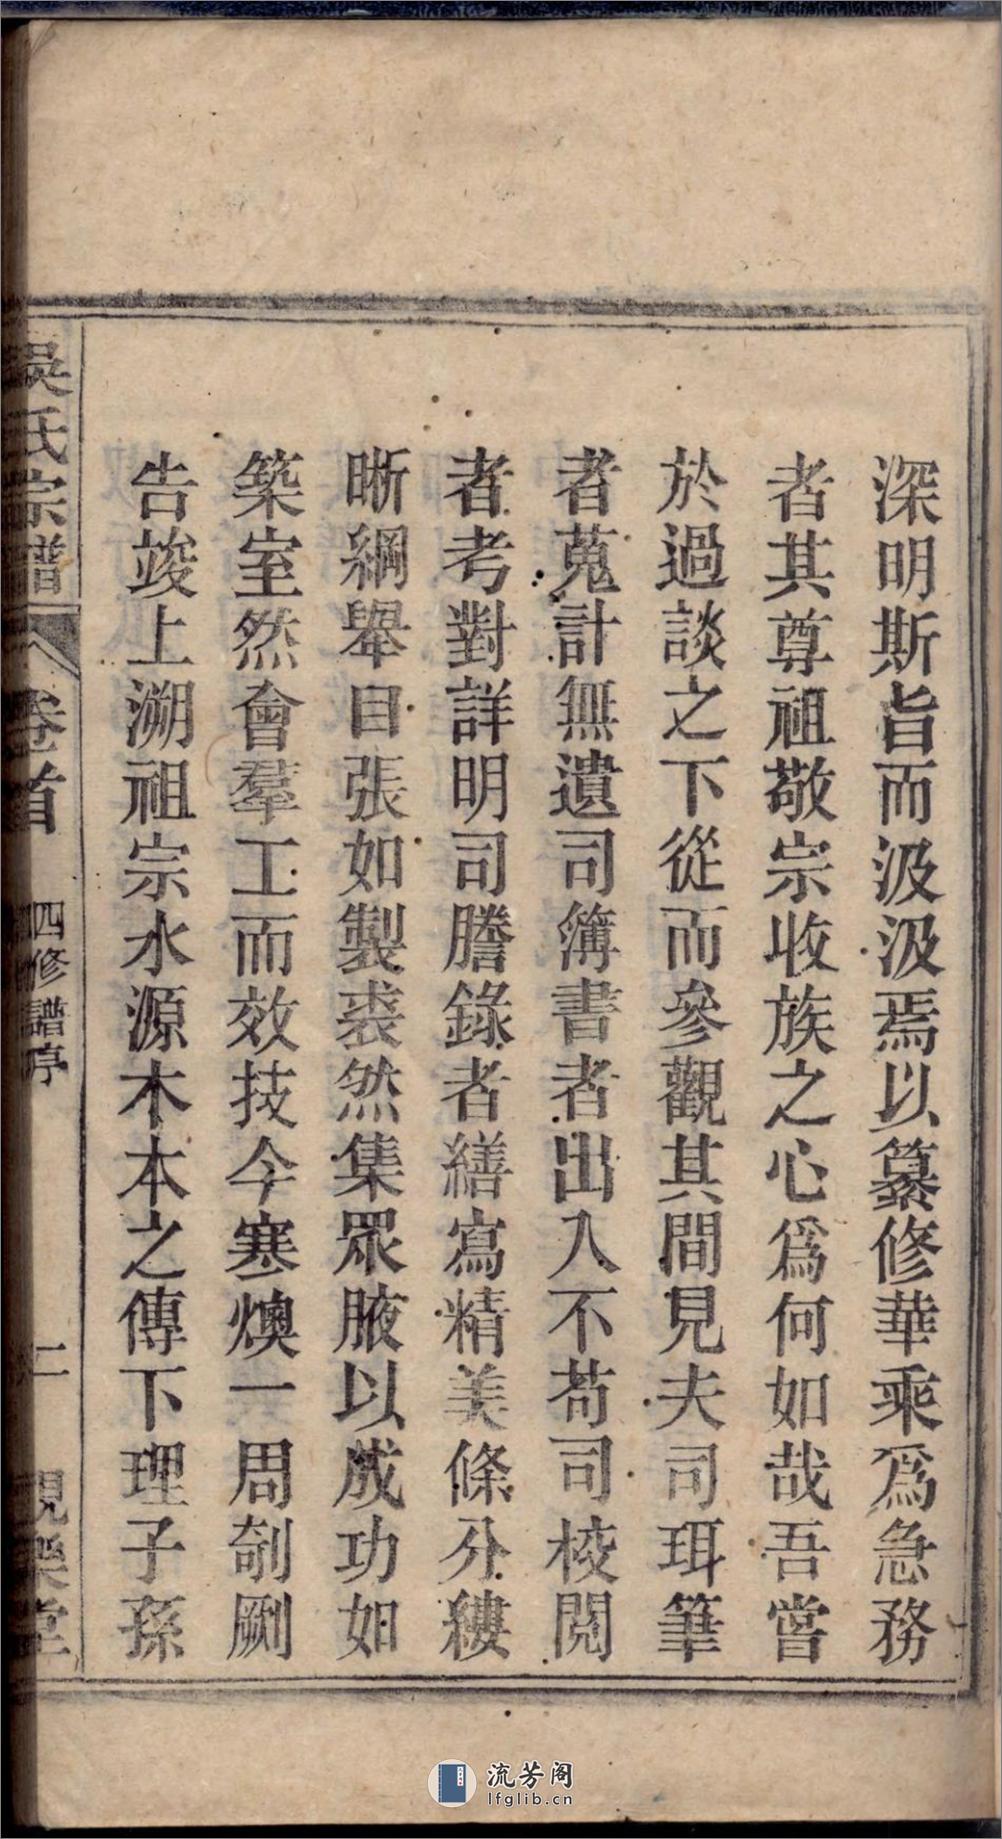 深明斯旨而汲汲焉以纂修華乘爲急務
者其尊祖敬宗收族之心爲何如哉吾嘗
於過談之下從而參觀其間見夫司珥筆
者蒐計無遺司簿書者出入不苟司校閱
者考對詳明司謄錄者繕寫精美條分縷
晰綱舉目張如製裘然集眾腋以成功如
築室然會羣工而效技今寒燠一周剞劂
告竣上溯祖宗水源木本之傳下理子孫
吳氏宗譜 卷首 四修譜序 二 親樂堂
流芳阁
lfglib.cn